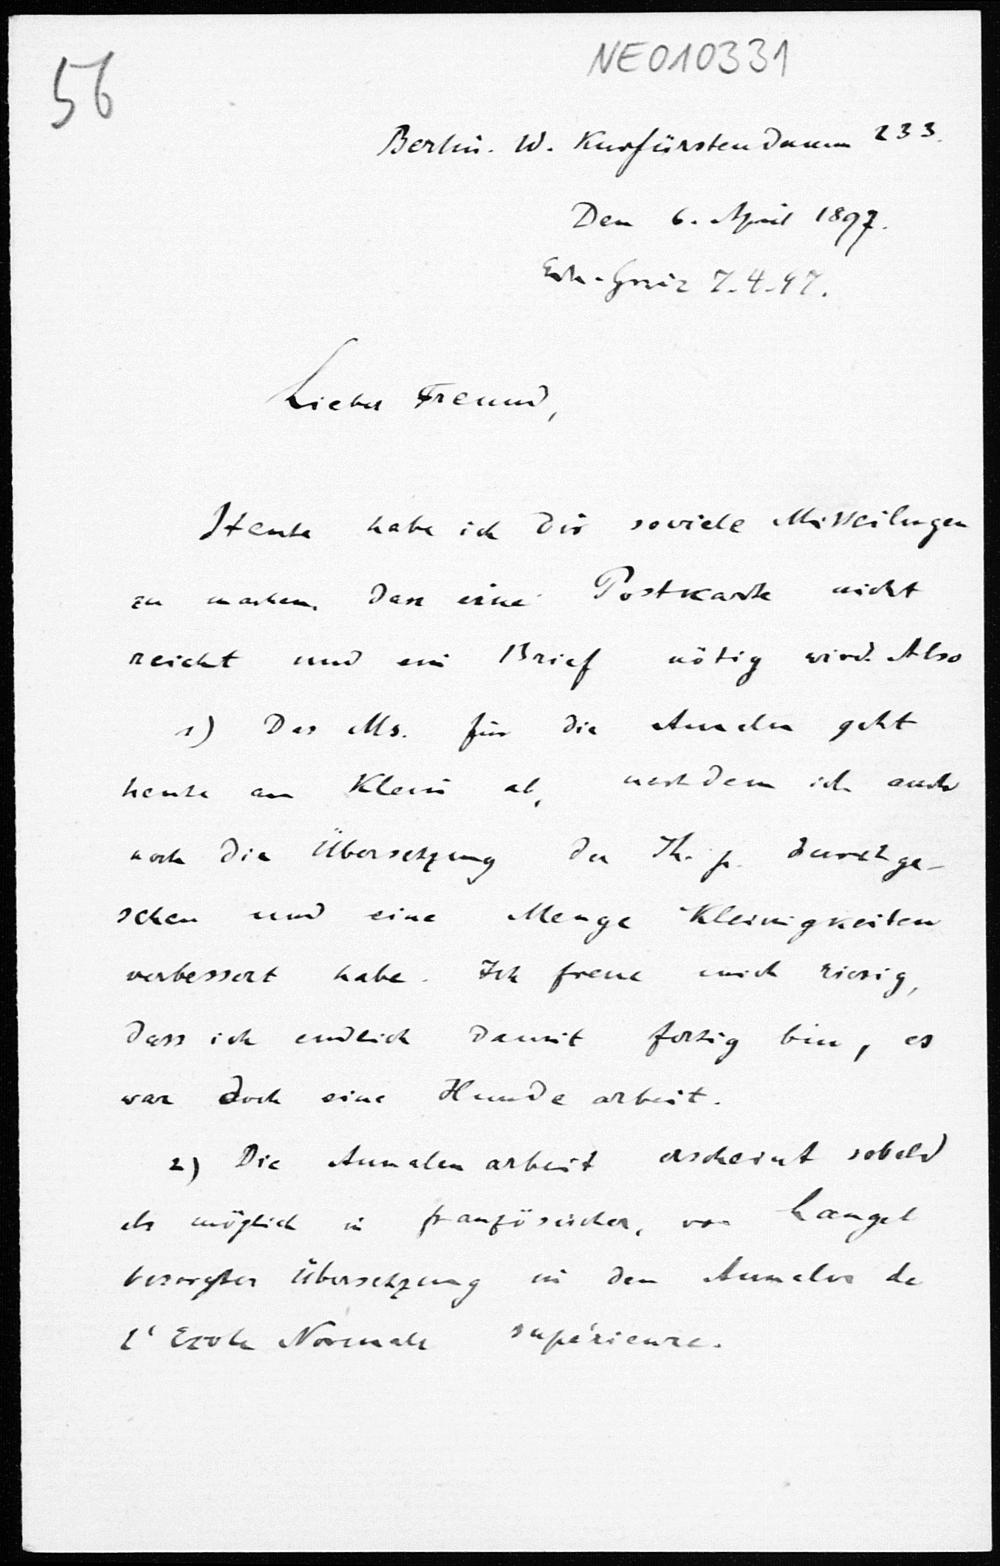 56
NE010331
Berlin. W. Kurfürstendamm 233.
Den 6. April 1897.
7.4.97.
Lieber Freund,
Heute habe ich Dir soviele Mitteilungen
zu machen, dass eine Postkarte nicht
reicht und ein Brief nötig wird. Also
1) Das Ms. für die Annalen geht
heute an Klein ab, nachdem ich auch
noch die Übersetzung der Th. p. durchge-
sehen und eine Menge Kleinigkeiten
verbessert habe. Ich freue mich riesig,
dass ich endlich damit fertig bin, es
war doch eine Hundearbeit.
2) Die Annalenarbeit erscheint sobald
als möglich in französischer, von Laugel
besorgter Übersetzung in den Annales de
l'Ecole Normale supérieure.